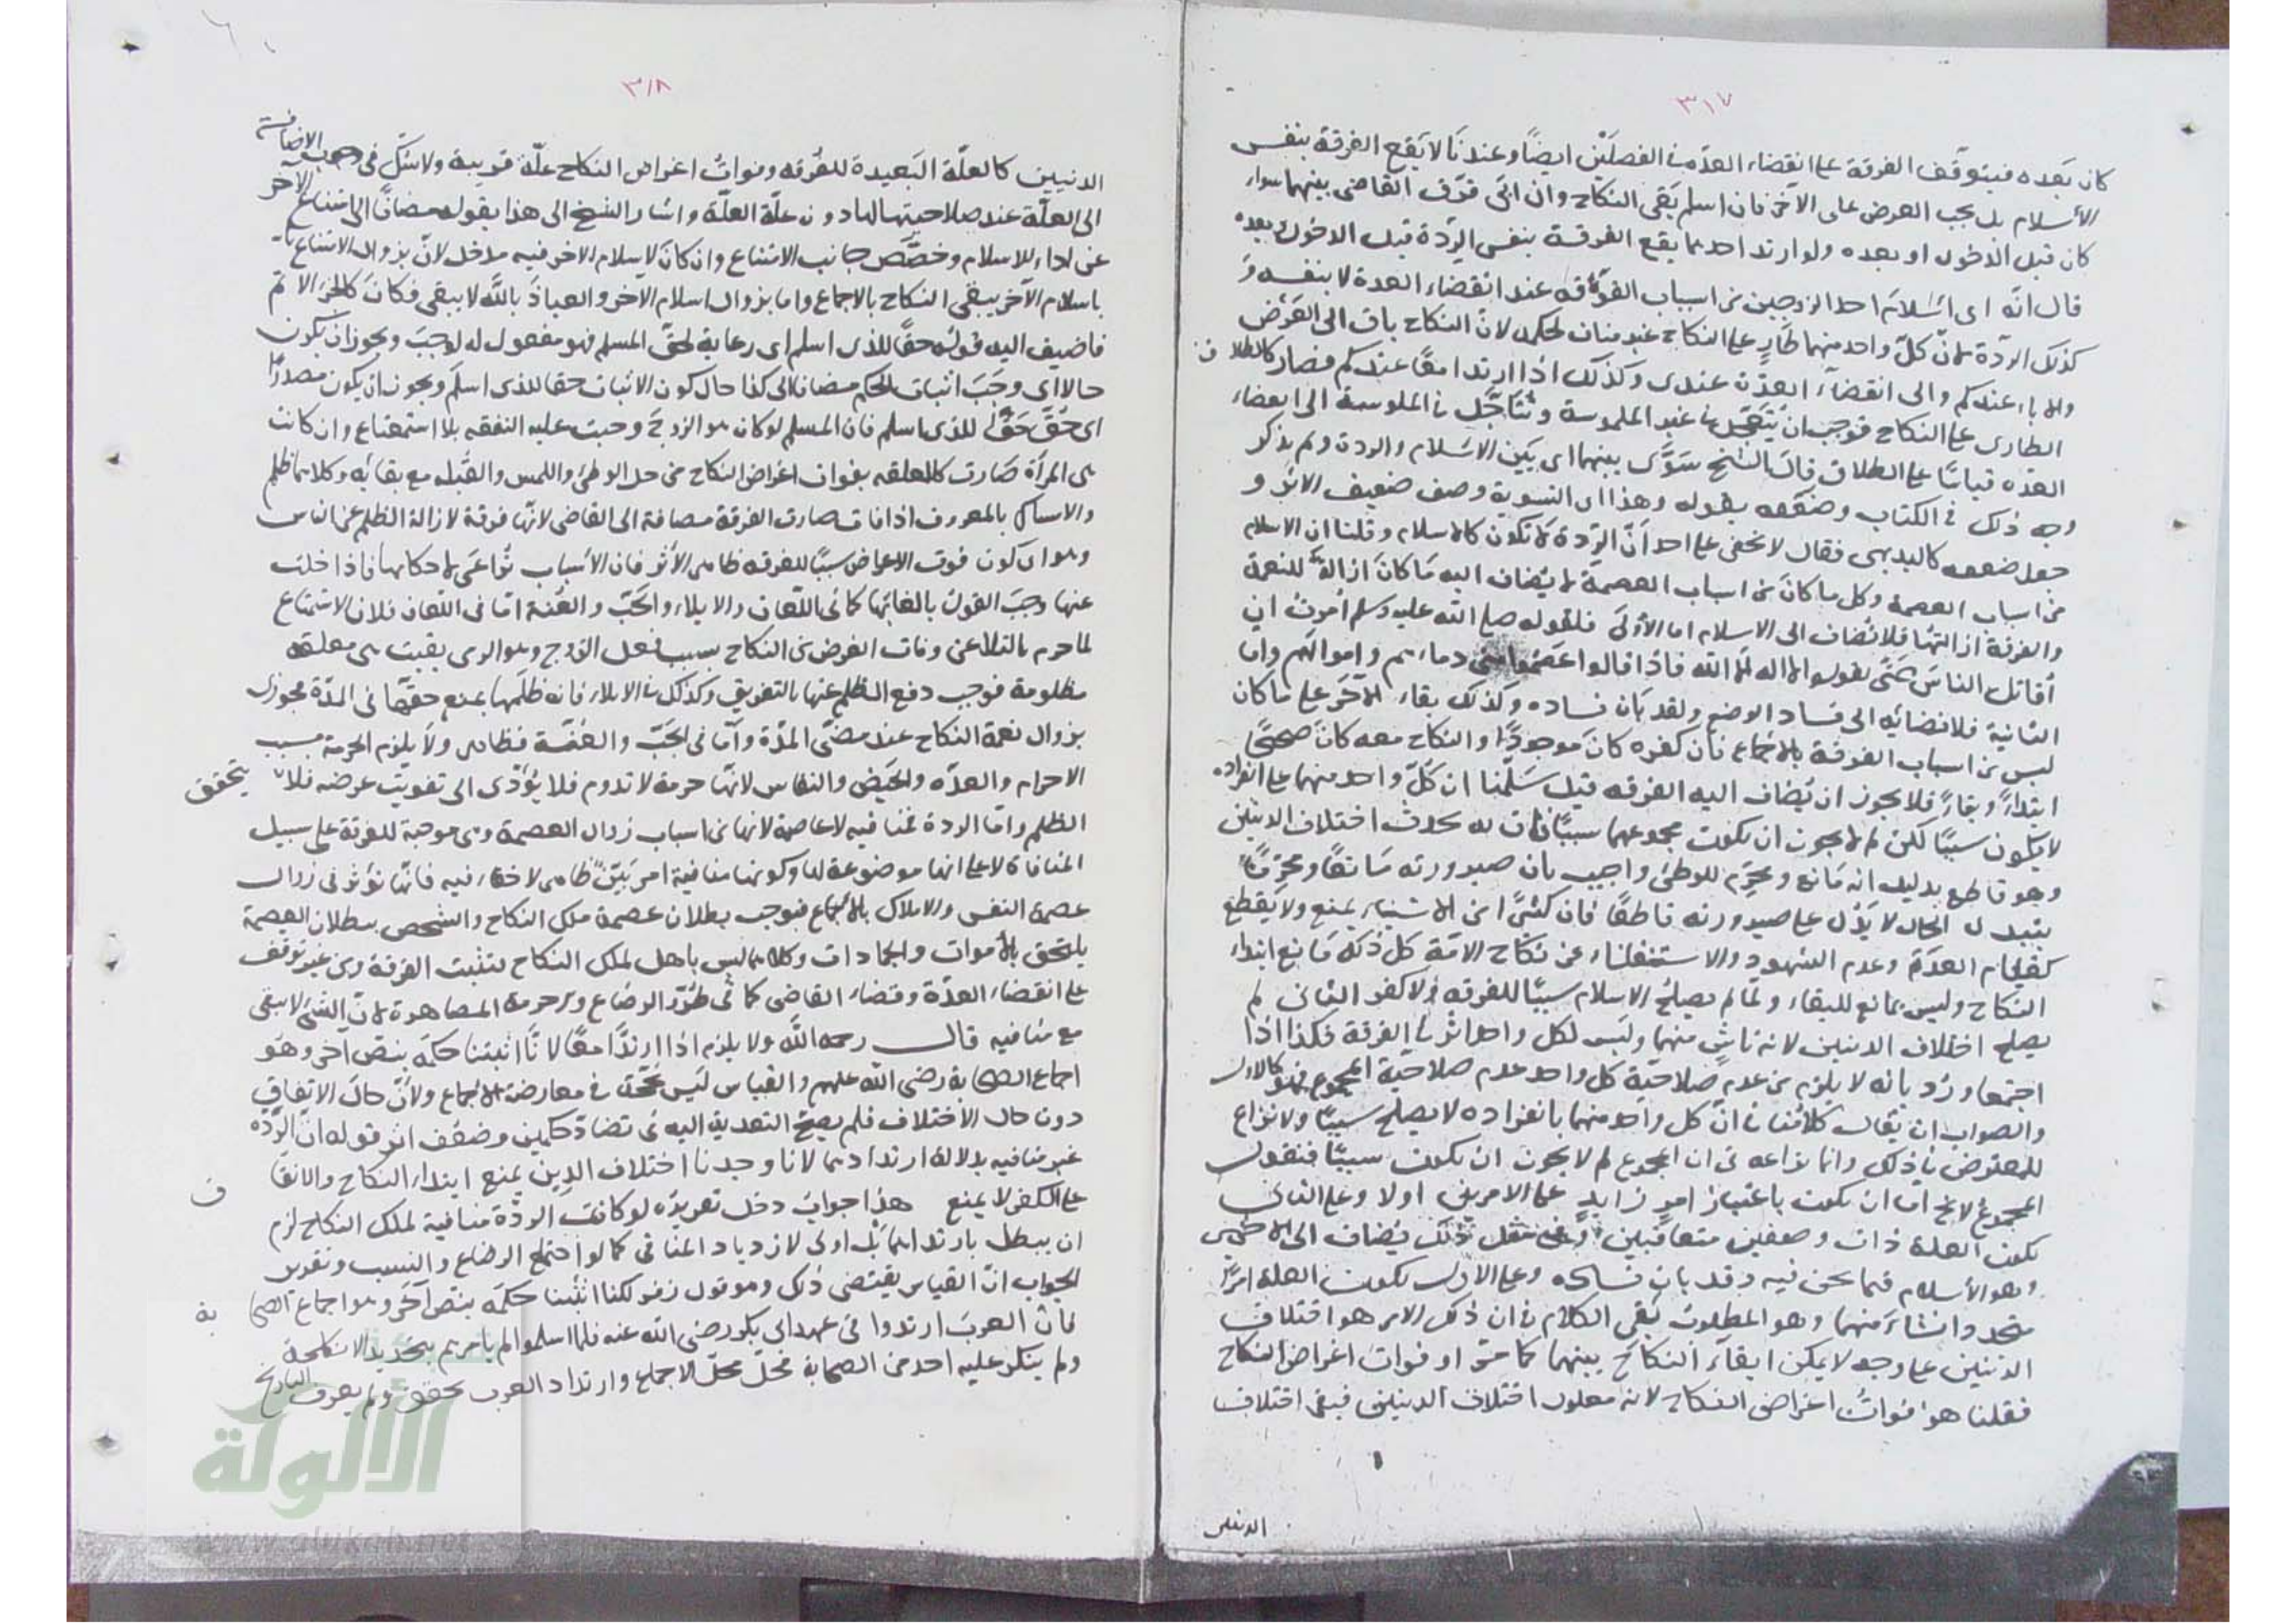 ٣١٧
كان بعده فيتوقف الفرقة على انقضاء العدة في الفصلين ايضاً وعندنا لا يقع الفرقة بنفس
الاسلام بل يجب العرض على الآخر فان اسلم بقى النكاح وان ابى فرق القاضى بينهما سواء
كان قبل الدخول او بعده ولو ارتد احدهما يقع الفرقة بنفس الردة قبل الدخول وبعده
قال انه اى اسلام احد الزوجين من اسباب الفرقة عند انقضاء العدة لا بنفسه و
كذلك الردة لان كل واحد منهما طار على النكاح غير مناف لحكمه لان النكاح باق الى العرض
والاباء عندكم والى انقضاء العدة عندى وكذلك اذا ارتدا معاً عندكم فصار كالطلاق
الطارى على النكاح فوجب ان يتعجل في غير الملموسة ويتأجل في الملموسة الى انقضاء
العدة قياساً على الطلاق قال الشيخ سوى بينهما اى بين الاسلام والردة ولم يذكر
وجه ذلك في الكتاب وضعفه بقوله وهذا اى التسوية وصف ضعيف الاثر و
جعل ضعفه كالبديهى فقال لا يخفى على احد ان الردة لا تكون كالاسلام وقلنا ان الاسلام
من اسباب العصمة وكل ما كان من اسباب العصمة لا يضاف اليه ما كان ازالة للنعمة
والفرقة ازالتها فلا تضاف الى الاسلام اما الاولى فلقوله صلى الله عليه وسلم امرت ان
اقاتل الناس حتى يقولوا لا اله الا الله فاذا قالوا عصموا منى دماءهم واموالهم واما
الثانية فلافضائه الى فساد الوضع ولقد بان فساده وكذلك بقاء الآخر على ما كان
ليس من اسباب الفرقة بالاجماع فان كفره كان موجوداً والنكاح معه كان صحيحاً
ابتداءً وبقاءً فلا يجوز ان يضاف اليه الفرقة قيل سلمنا ان كل واحد منهما على انفراده
لا يكون سبباً لكن لم لا يجوز ان يكون مجموعهما سبباً فان به يحدث اختلاف الدينين
وهو قاطع بدليل انه مانع ومحرم للوطئ واجيب بان صيرورته مانعاً ومحرماً
بتبدل الحال لا يدل على صيرورته قاطعاً فان كثيراً من الاشياء يمنع ولا يقطع
كقيام العدة وعدم الشهود والاستغناء عن نكاح الامة كل ذلك مانع ابتداء
النكاح وليس بمانع للبقاء ولما لم يصلح الاسلام سبباً للفرقة ولا كفر الثانى لم
يصلح اختلاف الدينين لانه ناش منهما وليس لكل واحد اثر في الفرقة فكذا اذا
اجتمعا ورد بانه لا يلزم من عدم صلاحية كل واحد عدم صلاحية المجموع فهو كالاول
والصواب ان يقال كلامنا في ان كل واحد منهما بانفراده لا يصلح سبباً ولا نزاع
للمعترض في ذلك وانما نزاعه في ان المجموع لم لا يجوز ان يكون سبباً فنقول
المجموع لا يخ اما ان يكون باعتبار امر زايد على الامرين اولا وعلى الثانى
يكون العلة ذات وصفين متعاقبين وفى مثل ذلك يضاف الى الاخير
وهو الاسلام فيما نحن فيه وقد بان فساده وعلى الاول يكون العلة امراً
متحداً نشاء منهما وهو المطلوب بقى الكلام في ان ذلك الامر هو اختلاف
الدينين على وجه لا يمكن ابقاء النكاح بينهما كما مر او فوات اغراض النكاح
فقلنا هو فوات اغراض النكاح لانه معلول اختلاف الدينين فبقى اختلاف
الدينين
٣١٨
الدينين كالعلة البعيدة للفرقة وفوات اغراض النكاح علة قريبة ولا شك في وجوب الاضافة
الى العلة عند صلاحيتها لها دون علة العلة واشار الشيخ الى هذا بقوله مضافاً الى امتناع الآخر
عن اداء الاسلام وخصص جانب الامتناع وان كان لاسلام الآخر فيه مدخل لان بزوال الامتناع
باسلام الآخر يبقى النكاح بالاجماع واما بزوال اسلام الآخر والعياذ بالله لا يبقى فكان كالجزء الاتم
فاضيف اليه قوله حقاً للذى اسلم اى رعاية لحق المسلم فهو مفعول له لوجب ويجوز ان يكون
حالا اى وجب اثبات الحكم مضافا الى كذا حال كون الاثبات حقا للذى اسلم ويجوز ان يكون مصدراً
اى حق حقاً للذى اسلم فان المسلم لو كان هو الزوج وجبت عليه النفقة بلا استمتاع وان كانت
هى المرأة صارت كالمعلقة بفوات اغراض النكاح من حل الوطئ واللمس والقبلة مع بقائه وكلاهما ظلم
والامساك بالمعروف اذا فات صارت الفرقة مضافة الى القاضى لانها فرقة لازالة الظلم عن الناس
وهو اى كون فوت الاغراض سبباً للفرقة ظاهر الاثر فان الاسباب تراعى لاحكامها فاذا خلت
عنها وجب القول بالغائها كما في اللعان والايلاء والجب والعنة اما فى اللعان فلان الاستمتاع
لما حرم بالتلاعن وفات الغرض من النكاح بسبب فعل الزوج وهو الرمى بقيت هى معلقة
مظلومة فوجب دفع الظلم عنها بالتفريق وكذلك في الايلاء فانه ظلمها بمنع حقها فى المدة فجوزى
بزوال نعمة النكاح عند مضى المدة واما فى الجب والعنة فظاهر ولا يلزم الحرمة بسبب
الاحرام والعدة والحيض والنفاس لانها حرمة لا تدوم فلا يؤدى الى تفويت غرضه فلا يتحقق
الظلم واما الردة فمنافية لا عاصمة لانها من اسباب زوال العصمة وهى موجبة للفرقة على سبيل
المنافاة لا على انها موضوعة لها وكونها منافية امر بين ظاهر لا خفاء فيه فانها تؤثر فى زوال
عصمة النفس والاملاك بالاجماع فيوجب بطلان عصمة ملك النكاح والشخص ببطلان العصمة
يلتحق بالاموات والجمادات وكلاهما ليس باهل لملك النكاح لتثبت الفرقة من غير توقف
على انقضاء العدة وقضاء القاضى كما فى طرو الرضاع وحرمة المصاهرة لان الشئ لا يبقى
مع منافيه قال رحمه الله ولا يلزم اذا ارتدا معاً لانا اثبتنا حكمه بنص آخر وهو
اجماع الصحابة رضى الله عنهم والقياس ليس بحجة في معارضة الاجماع ولان حال الاتفاق
دون حال الاختلاف فلم يصح التعدية اليه في تضاد حكمين وضعف اثر قوله ان الردة
غير منافية بدلالة ارتدادهما لانا وجدنا اختلاف الدين يمنع ابتداء النكاح والاتفاق
على الكفر لا يمنع هذا جواب دخل تقريره لو كانت الردة منافية لملك النكاح لزم
ان يبطل بارتدادهما بل اولى لازدياد المنافى كما لو اجتمع الرضاع والنسب وتقرير
الجواب ان القياس يقتضى ذلك وهو قول زفر لكنا اثبتنا حكمه بنص آخر وهو اجماع الصحابة
فان العرب ارتدوا فى عهد ابى بكر رضى الله عنه فلما اسلموا لم يأمرهم بتجديد الانكحة
ولم ينكر عليه احد من الصحابة فحل محل الاجماع وارتداد العرب محقق ولم يعرف التاريخ
الألوكة
www.alukah.net